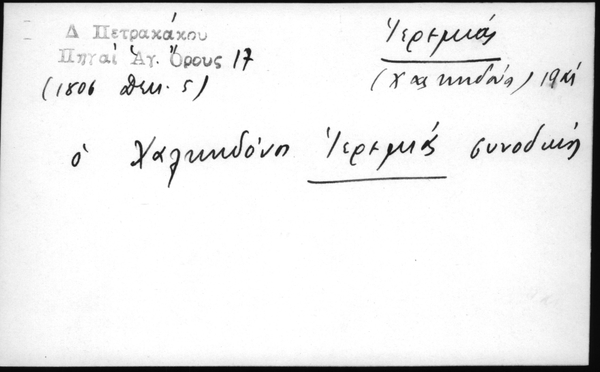 Δ Πετρακάκου
Πηγαί Ἁγ. Ὄρους 17
(1806 Δεκ. 5)
Ἱερεμίας
(Χαλκηδόνος)
ὁ Χαλκηδόνος Ἱερεμίας συνοδικῆς